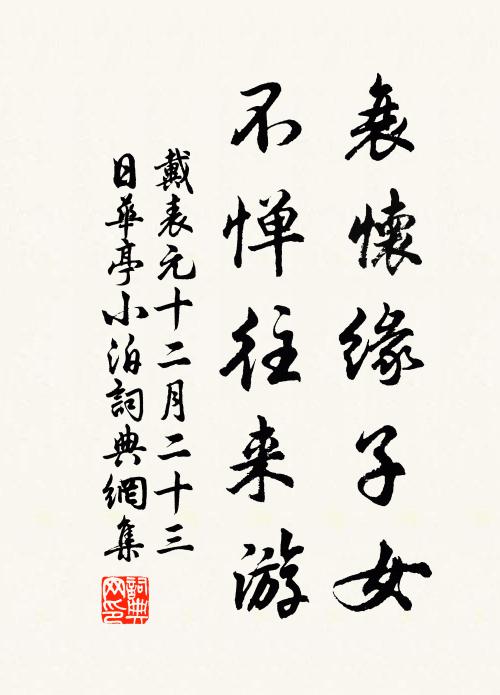 衰懷緣子女
不憚往来游
戴表元十二月二十三
日華亭小泊詞典網集
詞典网印